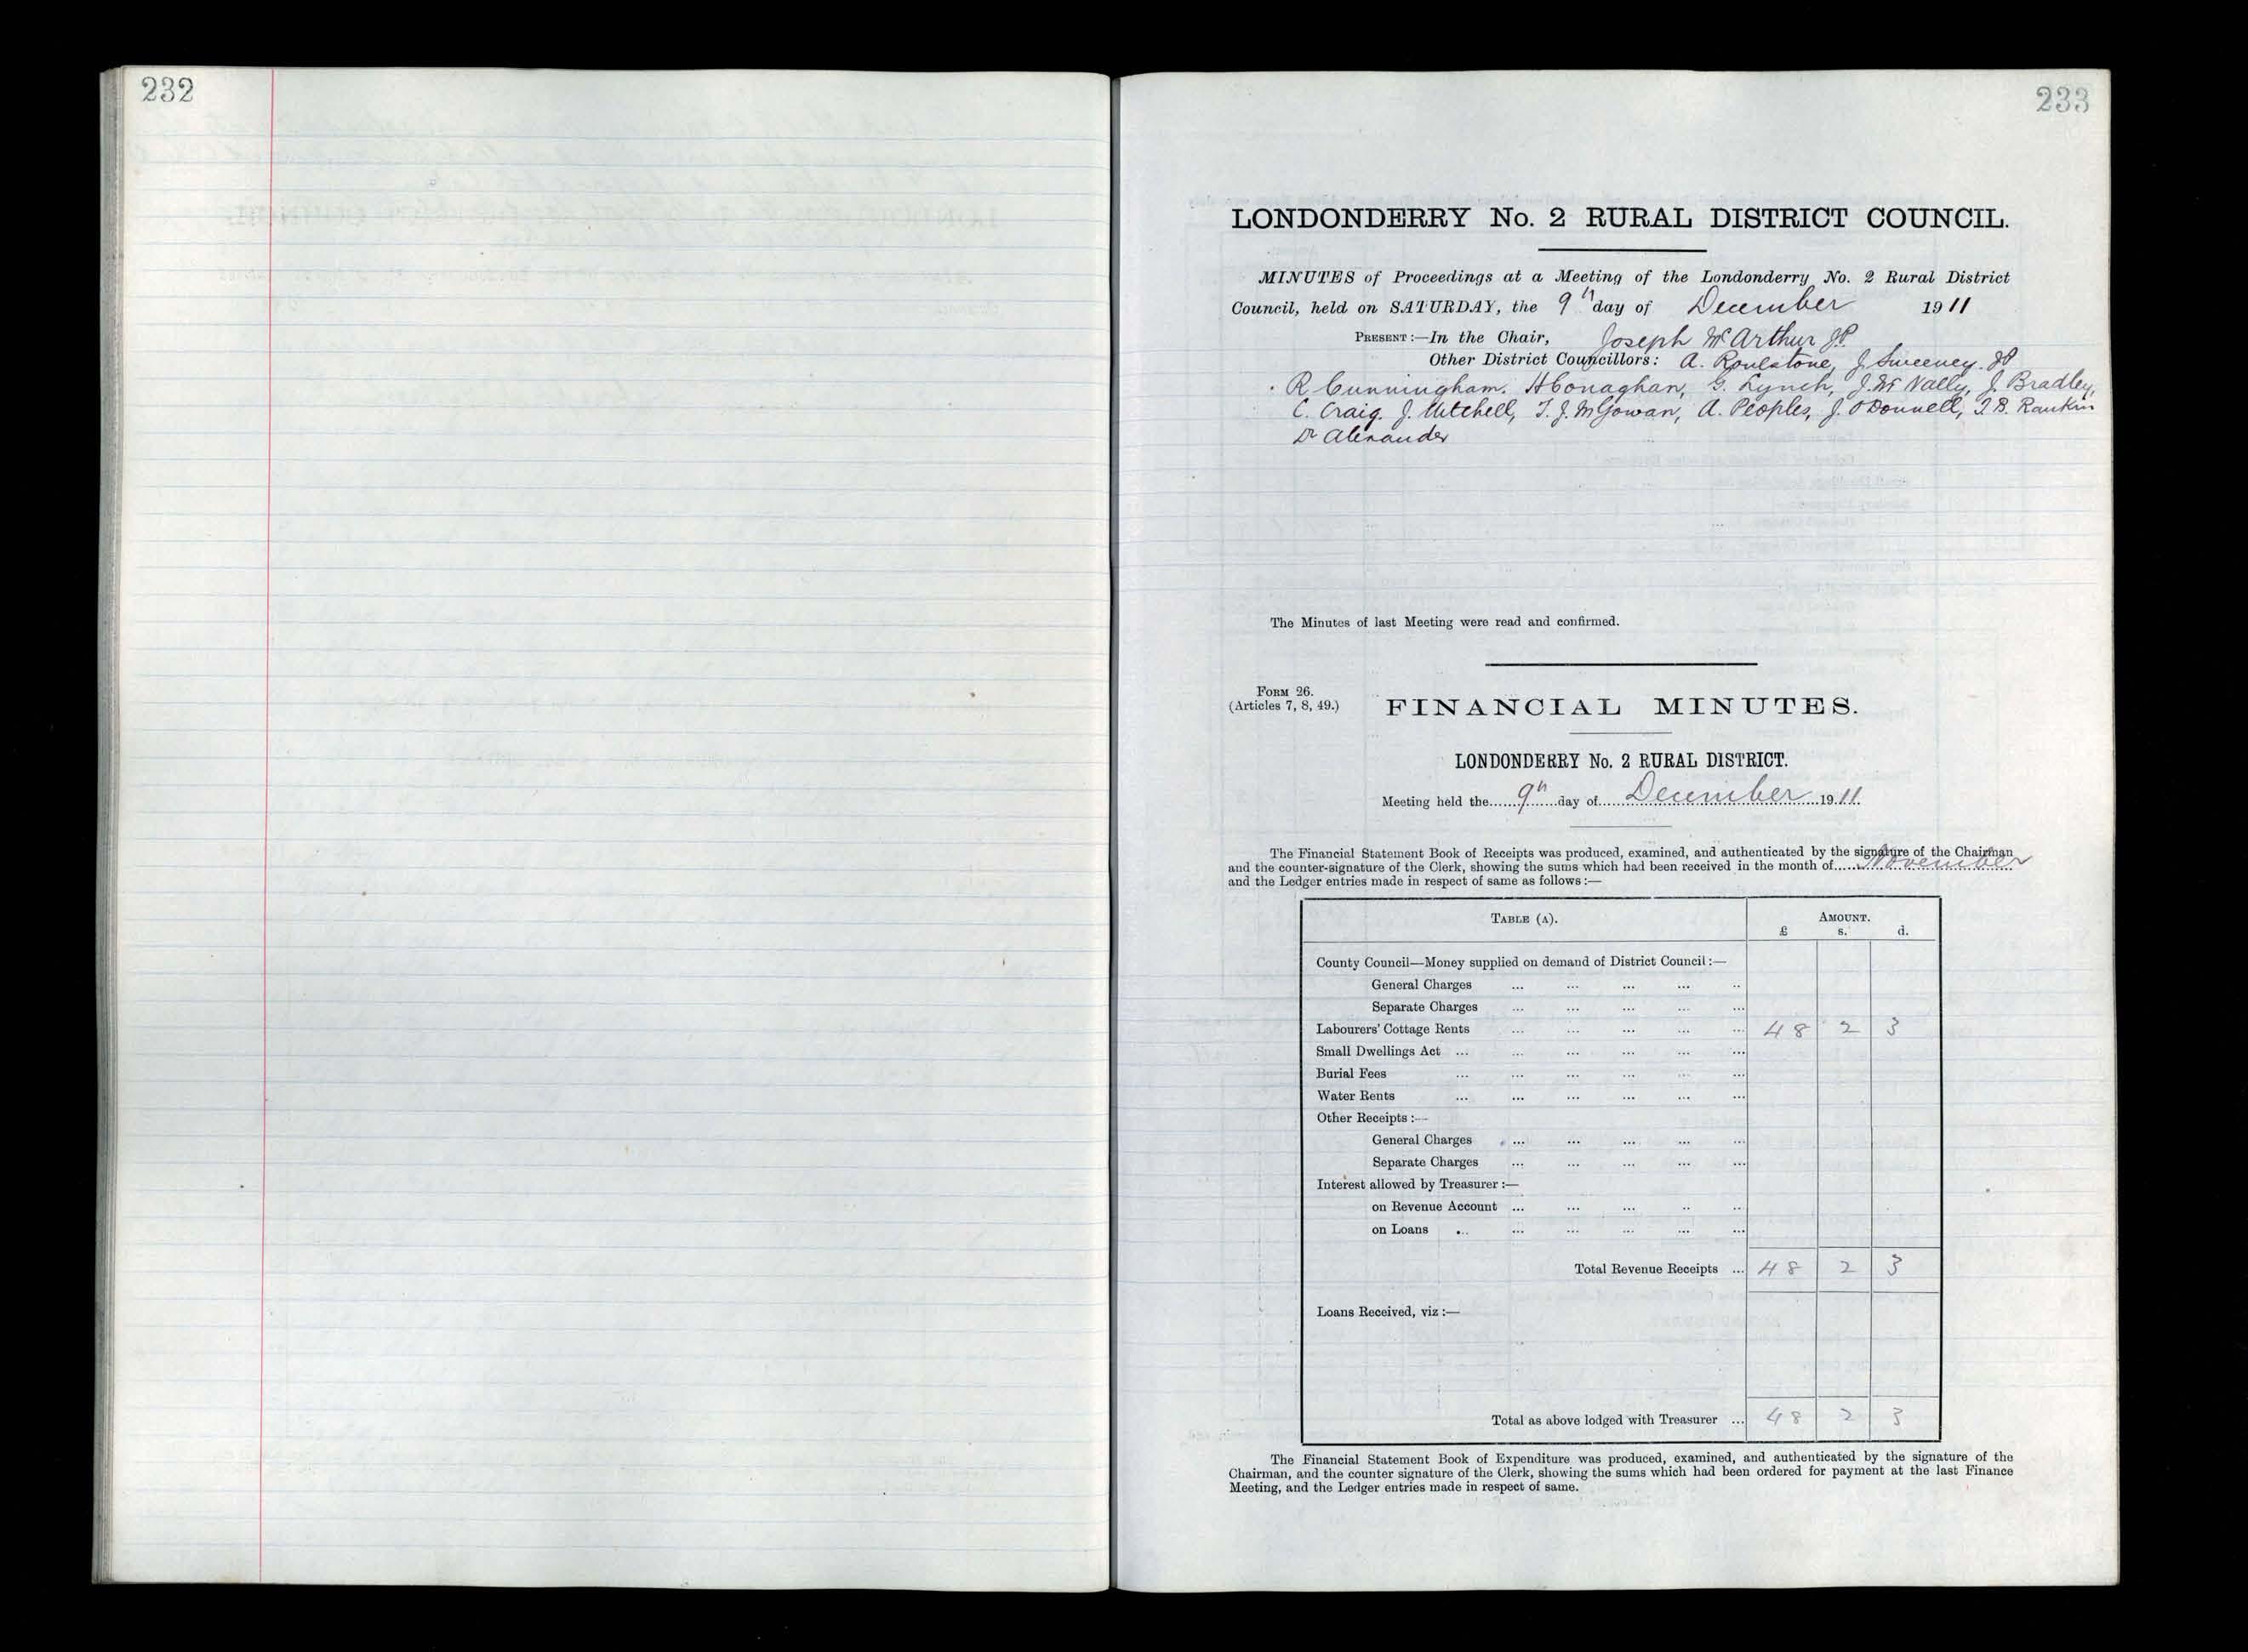 232
233
LONDONDERRY No. 2 RURAL DISTRICT COUNCIL.
MINUTES of Proceedings at a Meeting of the Londonderry No. 2 Rural District
Council, held on SATURDAY, the 9th day of December 1911
PRESENT:—In the Chair, Joseph McArthur J.P.
Other District Councillors: A. Roulstone, J Sweeney. JP
R Cunningham. H Conaghan, G. Lynch, J. McNally, J Bradley,
C. Craig. J. Mitchell, T. J. McGowan, A. Peoples, J. O'Donnell, T. B. Rankin
Dr Alexander
The Minutes of last Meeting were read and confirmed.
FORM 26.
(Articles 7, 8, 49.)
FINANCIAL MINUTES.
LONDONDERRY No. 2 RURAL DISTRICT.
Meeting held the......9th......day of......December......1911
The Financial Statement Book of Receipts was produced, examined, and authenticated by the signature of the Chairman
and the counter-signature of the Clerk, showing the sums which had been received in the month of......November
and the Ledger entries made in respect of same as follows:—
TABLE (A). AMOUNT.
£ s. d.
County Council—Money supplied on demand of District Council:—
General Charges ... ... ... ... ..
Separate Charges ... ... ... ... ...
Labourers' Cottage Rents ... ... ... ... ... 48 2 3
Small Dwellings Act ... ... ... ... ... ...
Burial Fees ... ... ... ... ... ...
Water Rents ... ... ... ... ... ...
Other Receipts:—
General Charges ... ... ... ... ...
Separate Charges ... ... ... ... ...
Interest allowed by Treasurer:—
on Revenue Account ... ... ... .. ..
on Loans ... ... ... ... ... ...
Total Revenue Receipts ... 48 2 3
Loans Received, viz:—
Total as above lodged with Treasurer ... 48 2 3
The Financial Statement Book of Expenditure was produced, examined, and authenticated by the signature of the
Chairman, and the counter signature of the Clerk, showing the sums which had been ordered for payment at the last Finance
Meeting, and the Ledger entries made in respect of same.